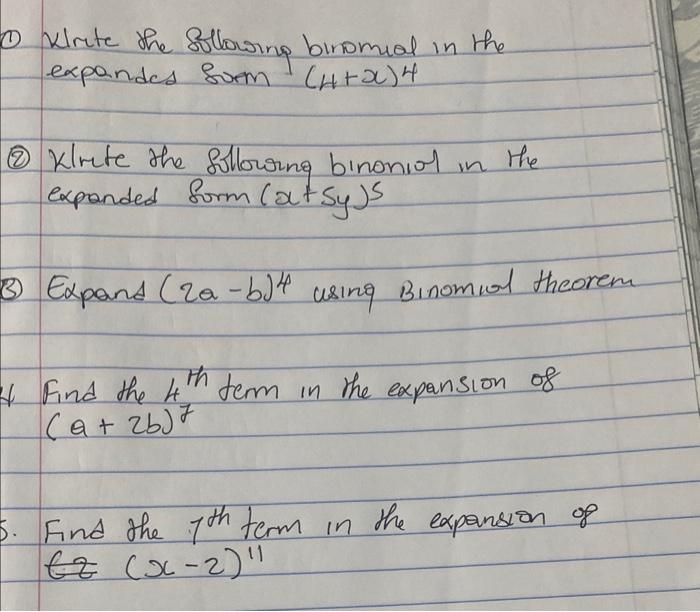 ① Write the following binomial in the
expanded form (4+x)4
② Write the following binomial in the
expanded form (x+5y)5
③ Expand (2a-b)4 using Binomial theorem
4 Find the 4th term in the expansion of
(a+2b)7
5. Find the 7th term in the expansion of
(x-2)11